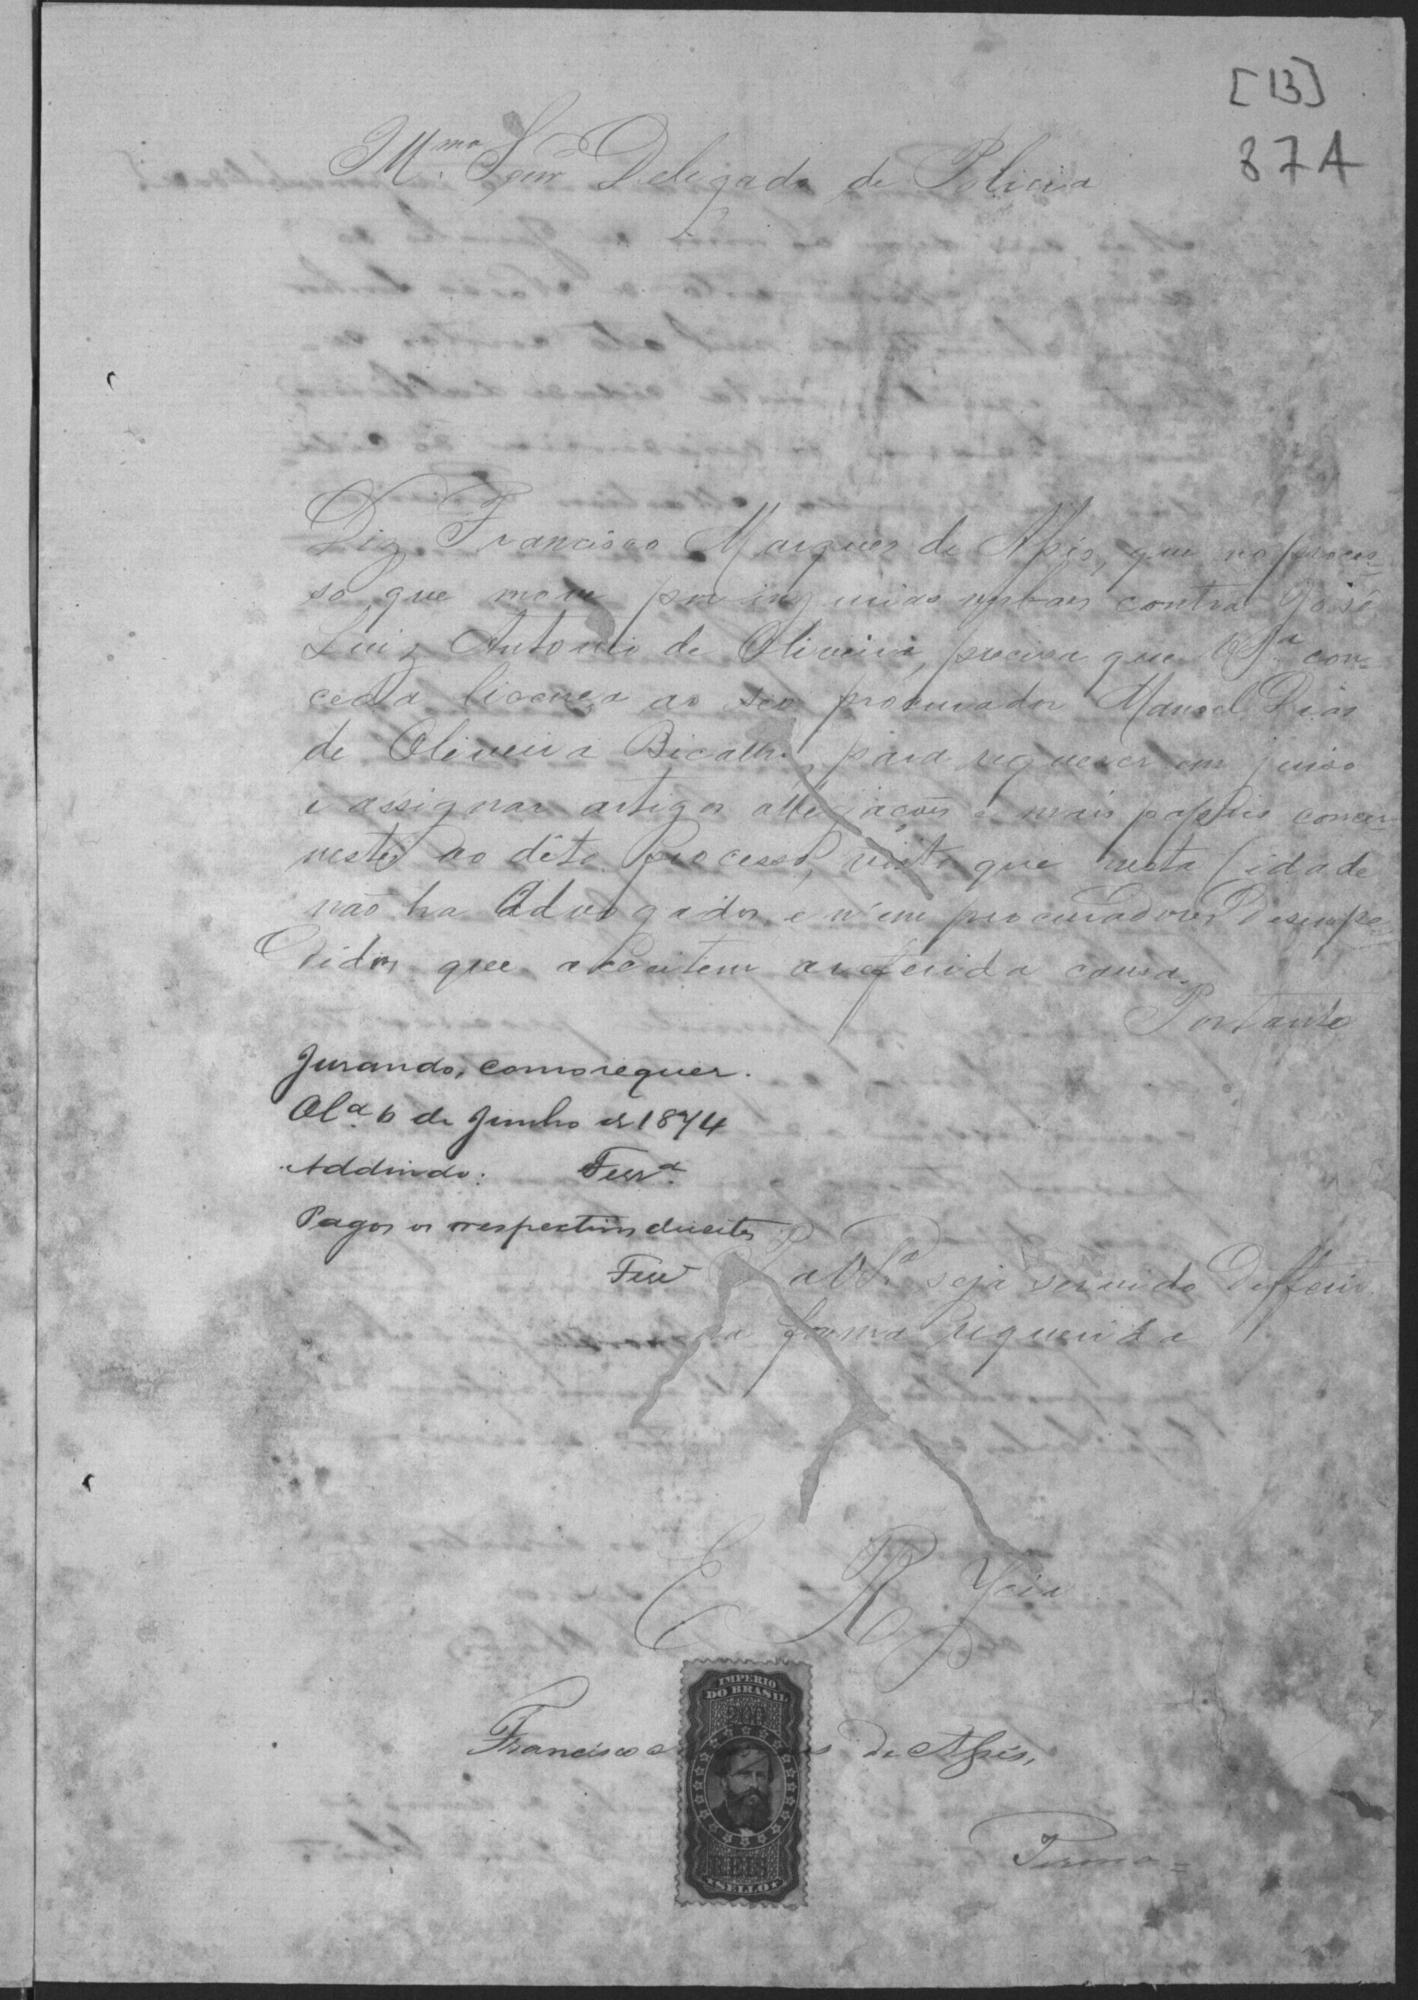 [13]
874
Illmo. Senr Delegado de Policia
Diz Francisco Marques de Assis, que no proces-
so que move por injurias verbaes contra José
Luiz Antonio de Oliveira, precisa que VSa con-
ceda licença ao seo procurador Manoel Dias
de Oliveira Bicalho, para requerer em juiso
e assignar artigos allegações e mais papeis concer-
nestes ao dito Processo, visto que nesta Cidade
não ha Advogados e nem procuradores Desimpe-
didos que acceitem a referida causa.
Portanto
Jurando, como requer.
6 de Junho de 1874
Addindo: Ferra.
Pagos os respectivos direitos
Ferra
P. a VSa. seja servido Differir
na forma requerida
E R Mcia
Francisco de Assis,
IMPERIO
DO BRASIL
200
REIS
SELLO